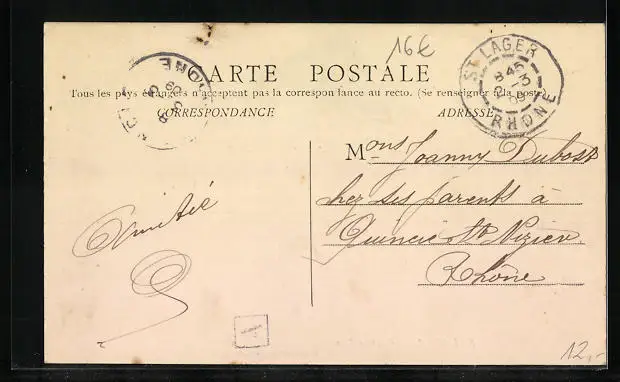 16€
CARTE POSTALE
Tous les pays étrangers n'acceptent pas la correspondance au recto. (Se renseigner à la poste)
CORRESPONDANCE
ADRESSE
ST LAGER
8 45
RHONE
RHONE
Mons Joanny Dubost
chez ses parents à
Quincié St Nizier
Rhône
Amitié
12,-